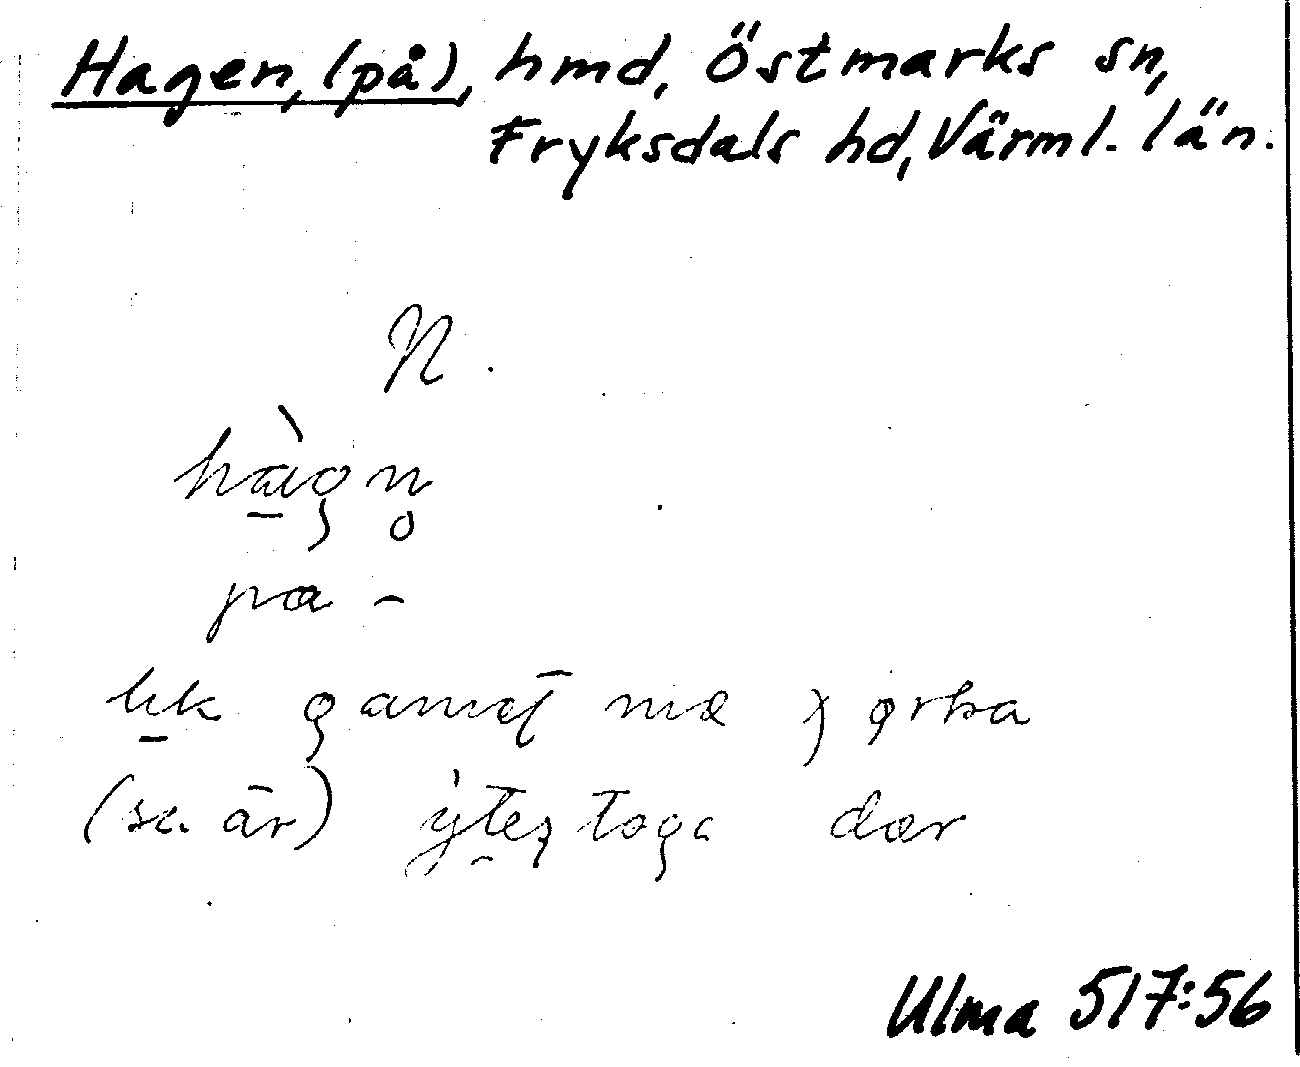 Hagen, (på), hmd, Östmarks sn,
Fryksdals hd, Värml. län.
N.
hàgn̥
pa -
lik gamał mæ
(sc. är) ỳter toga dær
Ulma 517:56